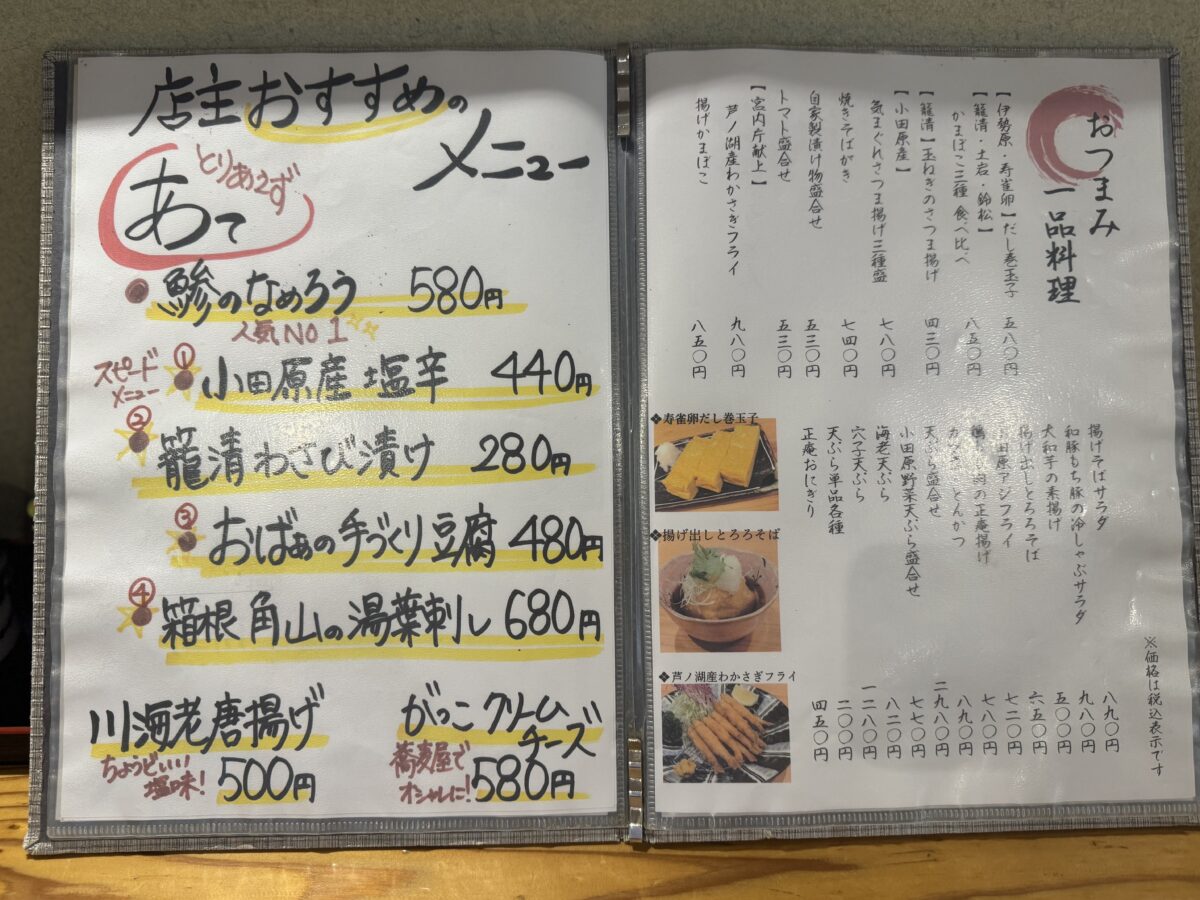 店主おすすめの
メニュー
とりあえず
あて
鯵のなめろう 580円
人気NO1
スピード
メニュー
① 小田原産 塩辛 440円
② 籠清わさび漬け 280円
③ おばぁの手づくり豆腐 480円
④ 箱根角山の湯葉刺し 680円
川海老唐揚げ
ちょうどいい
塩味!
500円
がっこクリーム
チーズ
蕎麦屋で
オシャレに!
580円
おつまみ
一品料理
【伊勢原・寿雀卵】だし巻玉子 五八〇円
【籠清・土岩・鈴松】
かまぼこ三種 食べ比べ 八五〇円
【籠清】玉ねぎのさつま揚げ 四三〇円
【小田原産】
気まぐれさつま揚げ三種盛 七八〇円
焼きそばがき 七四〇円
自家製漬け物盛合せ 五三〇円
トマト盛合せ 五三〇円
【宮内庁献上】
芦ノ湖産わかさぎフライ 九八〇円
揚げかまぼこ 八五〇円
揚げそばサラダ 八九〇円
和豚もち豚の冷しゃぶサラダ 九八〇円
大和芋の素揚げ 五〇〇円
揚げ出しとろろそば 六五〇円
田原アジフライ 七二〇円
の正庵揚げ 七八〇円
とんかつ 八九〇円
天ぷら盛合せ 二九八〇円
小田原野菜天ぷら盛合せ 八二〇円
海老天ぷら 七七〇円
穴子天ぷら 一二八〇円
天ぷら単品各種 二〇〇円
正庵おにぎり 四五〇円
※価格は税込表示です
❖寿雀卵だし巻玉子
❖揚げ出しとろろそば
❖芦ノ湖産わかさぎフライ